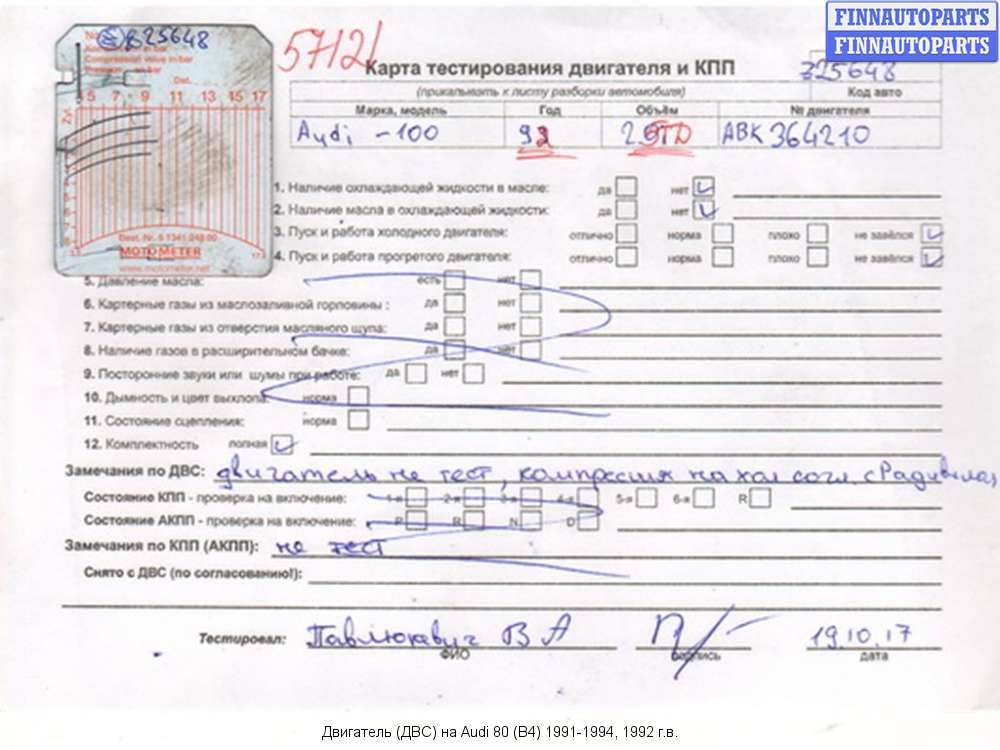 FINNAUTOPARTS
FINNAUTOPARTS
№ 325648
Compression value in bar
5 7 9 11 13 15 17
Best. Nr. 6 1341 048 00
MOTOMETER
www.motometer.net
5712
Карта тестирования двигателя и КПП
325648
(прикалывать к листу разборки автомобиля)
Код авто
Марка, модель Год Объём № двигателя
Ауди -100 92 ABK 364210
1. Наличие охлаждающей жидкости в масле: да нет
2. Наличие масла в охлаждающей жидкости: да нет
3. Пуск и работа холодного двигателя: отлично норма плохо не завёлся
4. Пуск и работа прогретого двигателя: отлично норма плохо не завёлся
5. Давление масла: есть нет
6. Картерные газы из маслозаливной горловины : да нет
7. Картерные газы из отверстия масляного щупа: да нет
8. Наличие газов в расширительном бачке: да нет
9. Посторонние звуки или шумы при работе: да нет
10. Дымность и цвет выхлопа: норма
11. Состояние сцепления: норма
12. Комплектность полная
Замечания по ДВС: двигатель не тест, компрессия на хол согл. с
Состояние КПП - проверка на включение: 1-я 2-я 3-я 4-я 5-я 6-я R
Состояние АКПП - проверка на включение: P R N D
Замечания по КПП (АКПП): не тест
Снято с ДВС (по согласованию!):
Тестировал: Павлюкевич В А 19.10.17
ФИО подпись дата
Двигатель (ДВС) на Audi 80 (B4) 1991-1994, 1992 г.в.